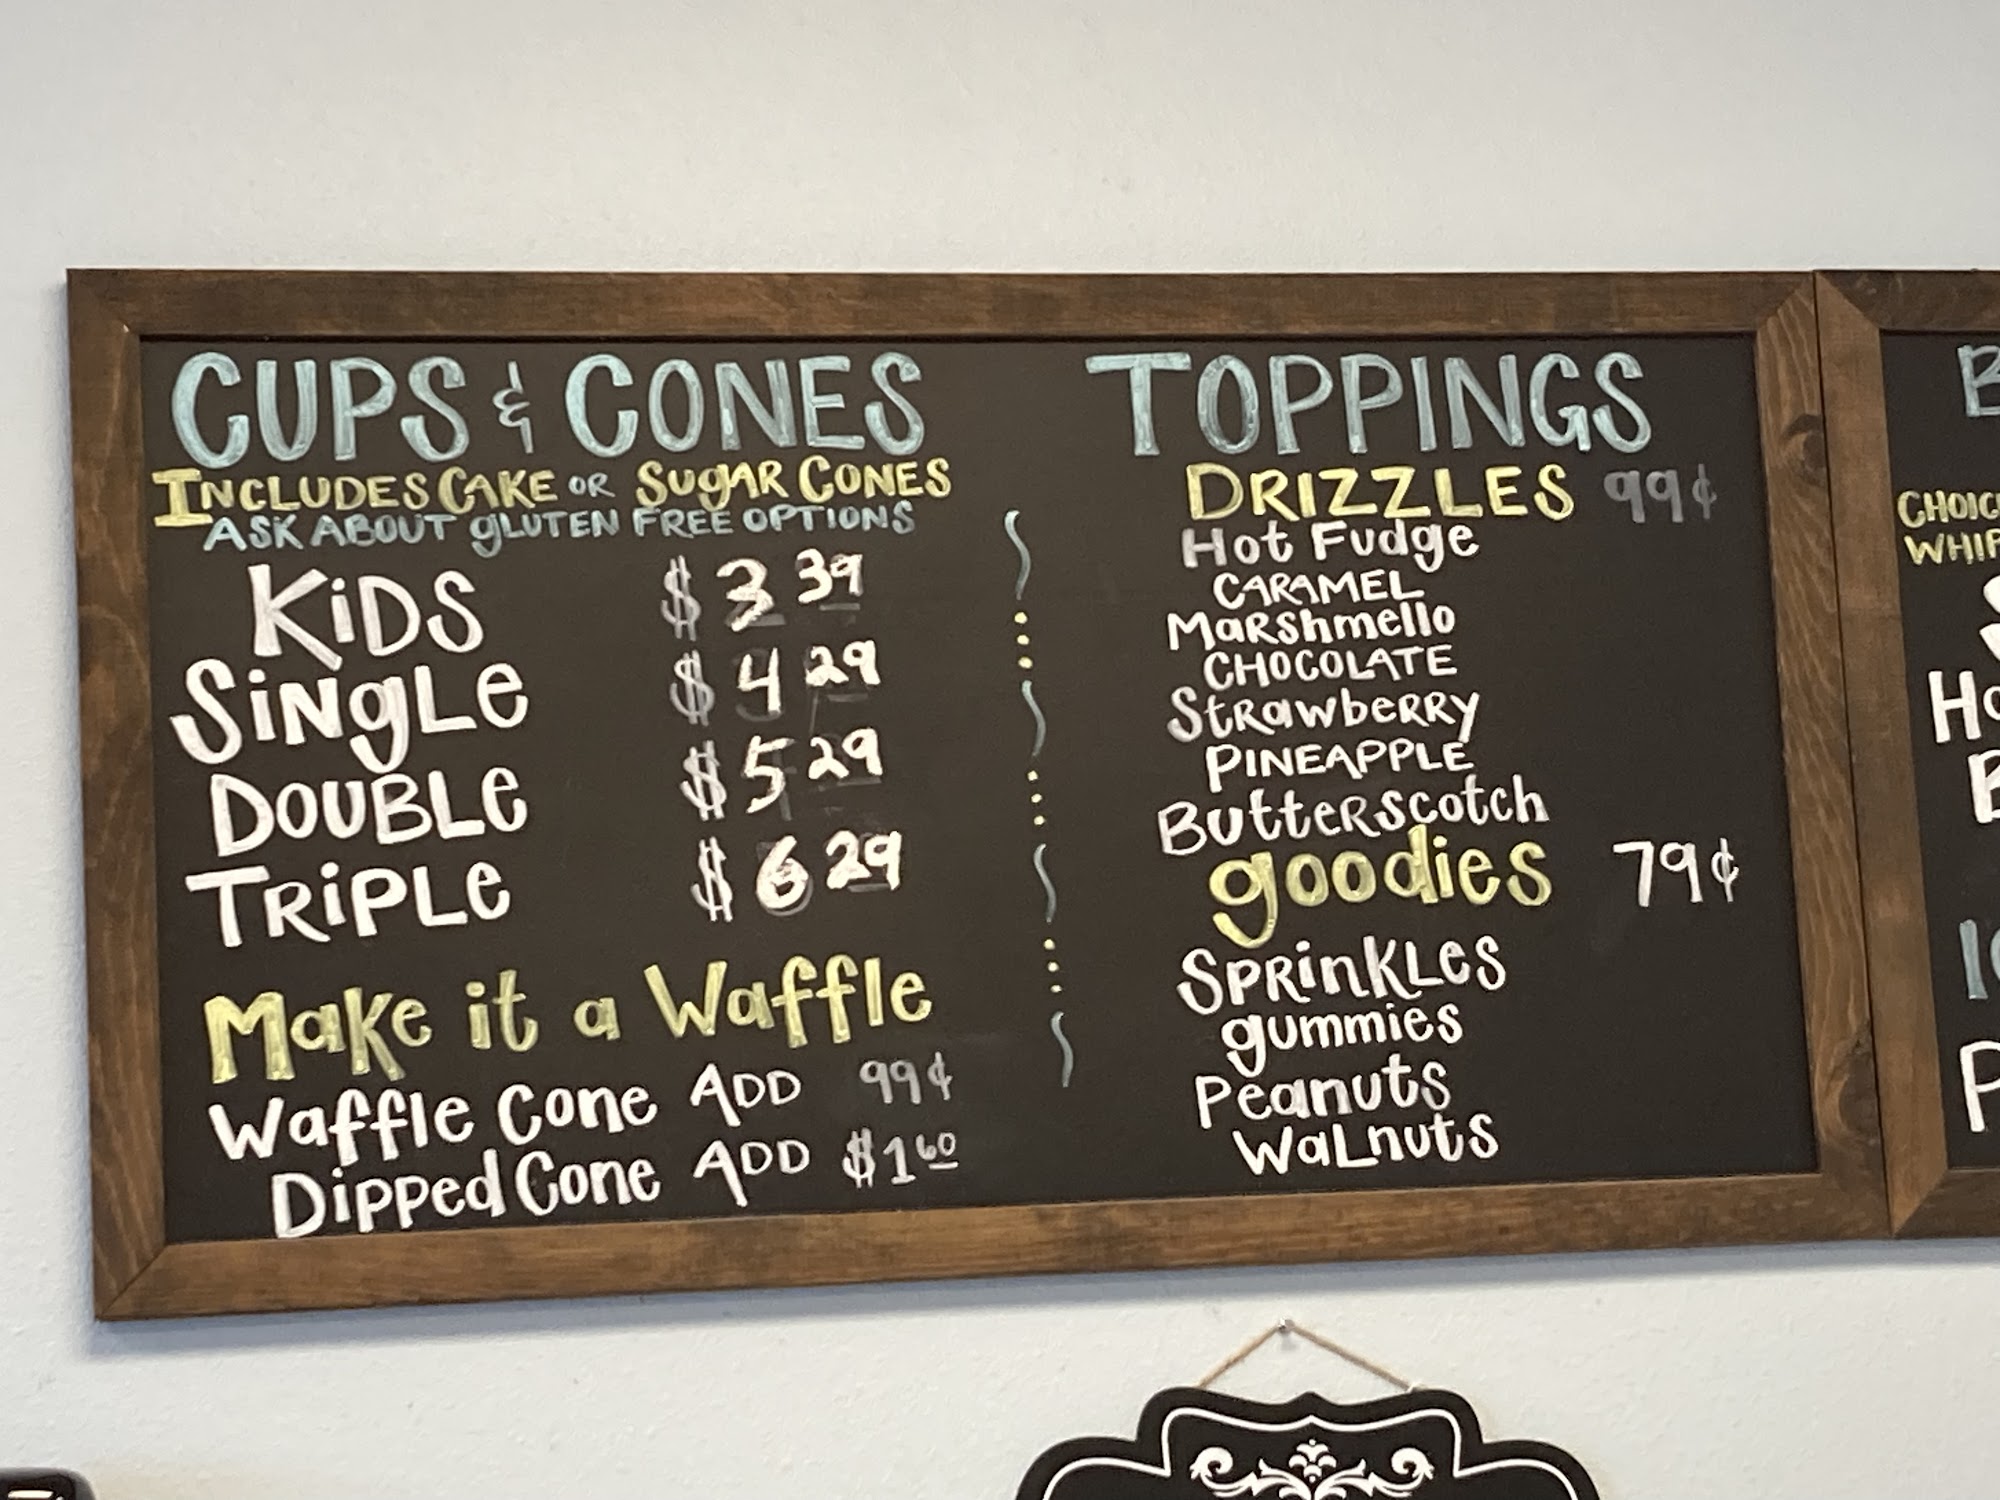 CUPS & CONES
INCLUDES CAKE OR SUGAR CONES
ASK ABOUT gLUTEN FREE OPTIONS
KiDS $ 3 39
SiNgLe $ 4 29
DOUBLe $ 5 29
TRiPLe $ 6 29
Make it a Waffle
Waffle Cone ADD 99¢
Dipped Cone ADD $1 60
TOPPINGS
DRIZZLES 99¢
Hot Fudge
CARAMEL
Marshmello
CHOCOLATE
Strawberry
PINEAPPLE
Butterscotch
goodies 79¢
SPRinKLes
gummies
Peanuts
WaLnuts